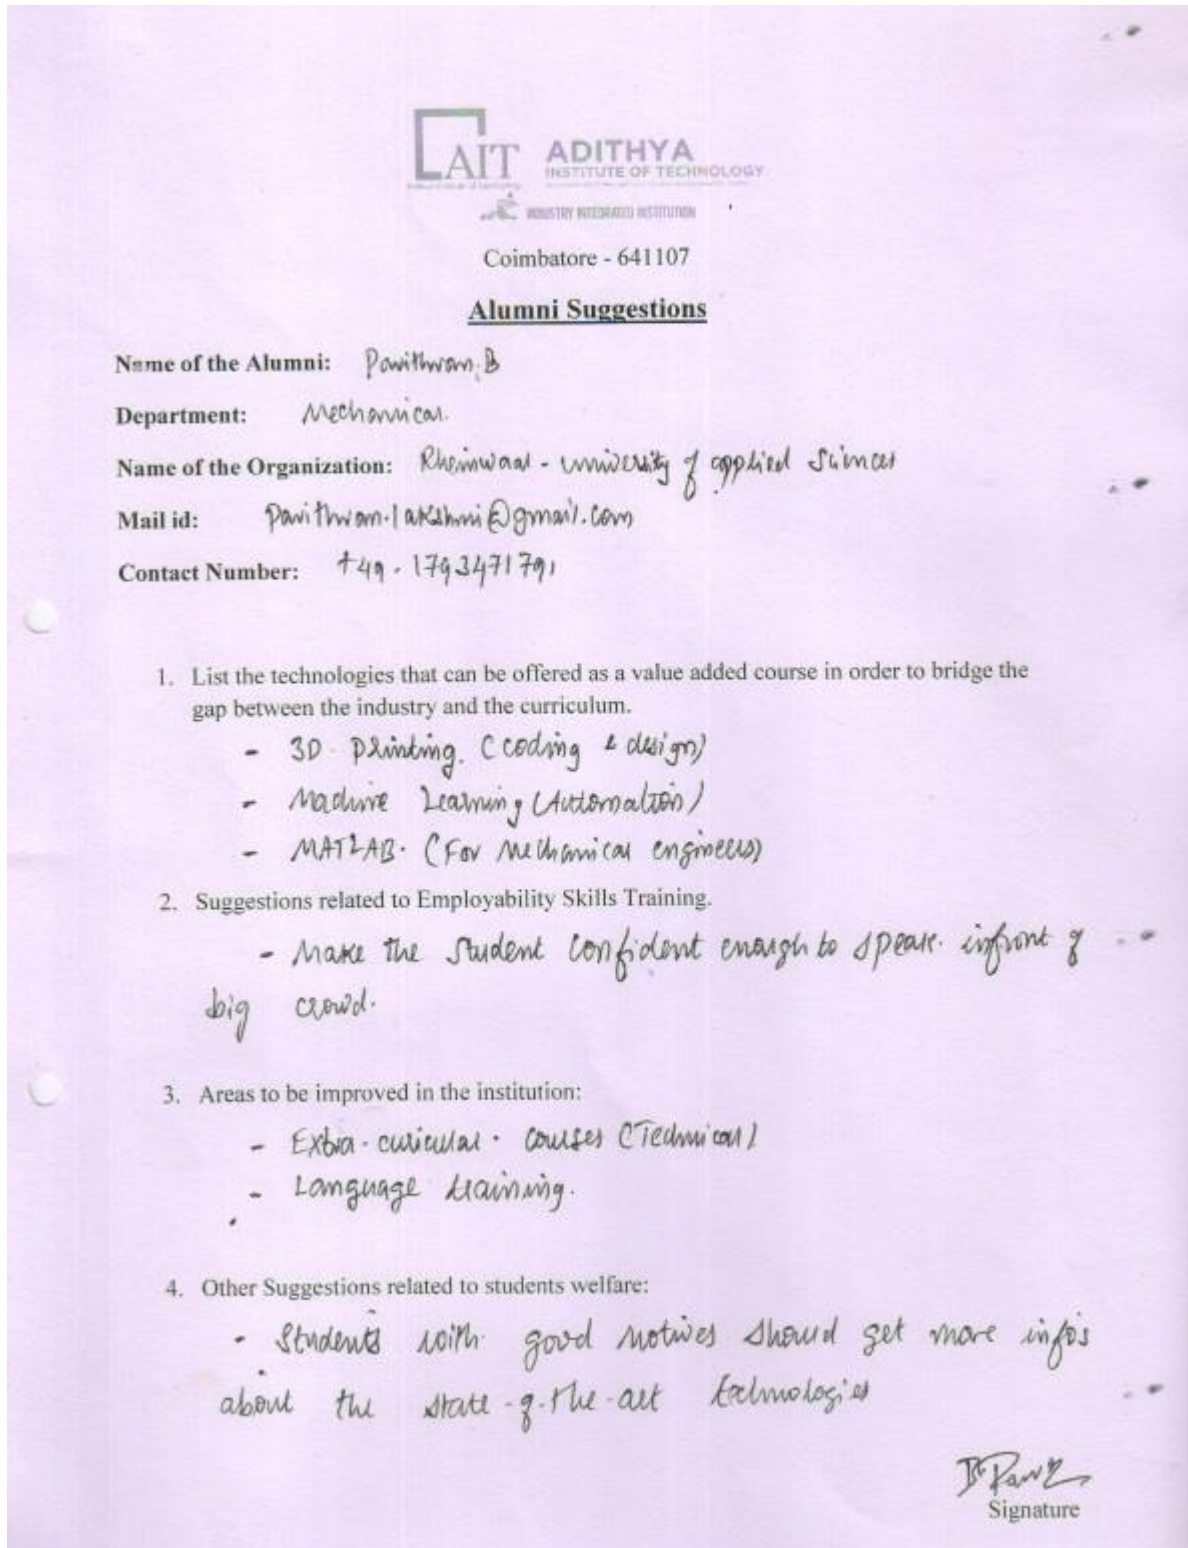 AIT ADITHYA
INSTITUTE OF TECHNOLOGY
INDUSTRY INTEGRATED INSTITUTION
Coimbatore - 641107
Alumni Suggestions
Name of the Alumni: Pavithran.B
Department: Mechanical.
Name of the Organization: Rheinwaal - university of applied Sciences
Mail id: Pavithran.lakshmi@gmail.com
Contact Number: +49 - 1793471791
1. List the technologies that can be offered as a value added course in order to bridge the
gap between the industry and the curriculum.
- 3D Printing. (coding & design)
- Machine Learning (Automation)
- MATLAB. (For Mechanical engineers)
2. Suggestions related to Employability Skills Training.
- Make the Student confident enough to speak infront of
big crowd.
3. Areas to be improved in the institution:
- Extra-curicular. courses (Technical)
- Language training.
4. Other Suggestions related to students welfare:
- Students with good motives should get more info's
about the state-of-the-art technologies
Signature